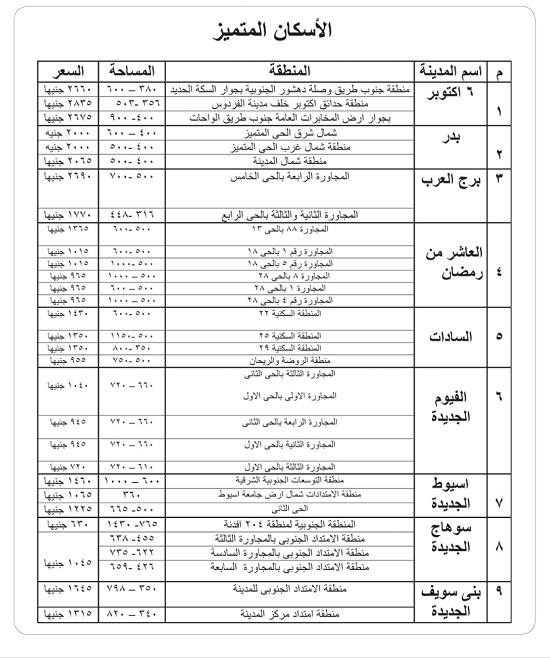 الأسكان المتميز
م اسم المدينة المنطقة المساحة السعر
١ ٦ اكتوبر منطقة جنوب طريق وصلة دهشور الجنوبية بجوار السكة الحديد ٣٨٠ – ٦٠٠ ٢٦٦٠ جنيها
منطقة حدائق اكتوبر خلف مدينة الفردوس ٣٥٦ -٥٠٣ ٢٨٣٥ جنيها
بجوار ارض المخابرات العامة جنوب طريق الواحات ٤٠٠- ٩٠٠ ٢٦٧٥ جنيها
٢ بدر شمال شرق الحى المتميز ٤٠٠ – ٦٠٠ ٢٠٠٠ جنيه
منطقة شمال غرب الحى المتميز ٤٠٠ - ٥٠٠ ٢٠٠٠ جنيها
منطقة شمال المدينة ٤٠٠ - ٥٠٠ ٢٠٦٥ جنيها
٣ برج العرب المجاورة الرابعة بالحى الخامس ٥٠٠ - ٧٠٠ ٢٦٩٠ جنيها
المجاورة الثانية والثالثة بالحى الرابع ٣١٦ - ٤٤٨ ١٧٧٠ جنيها
٤ العاشر من رمضان المجاورة ٨٨ بالحى ١٣ ٥٠٠ -٦٠٠ ١٣٦٥ جنيها
المجاورة رقم ١ بالحى ١٨ ٥٠٠ -٦٠٠ ١٠١٥ جنيها
المجاورة رقم ٥ بالحى ١٨ ٥٠٠ -١٠٠٠ ١٠١٥ جنيها
المجاورة ٨ بالحى ٢٨ ٥٠٠ – ١٠٠٠ ٩٦٥ جنيها
المجاورة ١ بالحى ٢٨ ٥٠٠ – ٦٠٠ ٩٦٥ جنيها
المجاورة رقم ٤ بالحى ٢٨ ٥٠٠ – ١٠٠٠ ٩٦٥ جنيها
٥ السادات المنطقة السكنية ٢٢ ٥٠٠ -٦٠٠ ١٤٣٠ جنيها
المنطقة السكنية ٢٥ ٥٠٠ -١١٥٠ ١٣٥٠ جنيها
المنطقة السكنية ٢٩ ٣٥٠ - ٨٠٠ ١٣٥٠ جنيها
منطقة الروضة والريحان ٥٠٠ -٧٥٠ ٩٥٥ جنيها
٦ الفيوم الجديدة المجاورة الثالثة بالحى الثانى
المجاورة الاولى بالحى الاول ٦٦٠ – ٧٢٠ ١٠٤٠ جنيها
المجاورة الرابعة بالحى الثانى ٦٦٠ – ٧٢٠ ٩٤٥ جنيها
المجاورة الثانية بالحى الاول ٦٦٠ – ٧٢٠ ٩٤٥ جنيها
المجاورة الثالثة بالحى الاول ٦١٠ – ٧٢٠ ٧٢٠ جنيها
٧ اسيوط الجديدة منطقة التوسعات الجنوبية الشرقية ٦٠٠ – ١٠٠٠ ١٤٦٠ جنيها
منطقة الامتدادات شمال ارض جامعة اسيوط ٣٦٠ ١٠٦٥ جنيها
الحى الثانى ٥٠٠- ٦٦٥ ١٢٢٥ جنيها
٨ سوهاج الجديدة المنطقة الجنوبية لمنطقة ٢٠٤ افدنة ٧٦٥- ١٤٣٠ ٦٣٠ جنيها
منطقة الامتداد الجنوبى بالمجاورة الثالثة ٤٥٥- ٦٣٨
منطقة الامتداد الجنوبى بالمجاورة السادسة ٦٢٢- ٧٣٥ ١٠٤٥ جنيها
منطقة الامتداد الجنوبى بالمجاورة السابعة ٤٢٦ - ٦٥٩
٩ بنى سويف الجديدة منطقة الامتداد الجنوبى للمدينة ٣٥٠ – ٧٩٨ ١٦٤٥ جنيها
منطقة امتداد مركز المدينة ٣٤٠ – ٨٢٠ ١٣١٥ جنيها